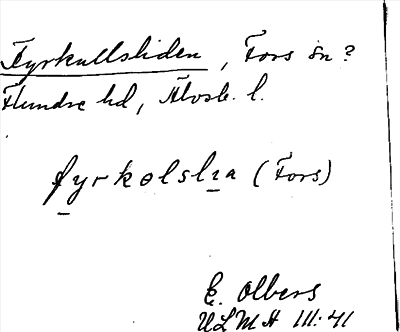 Fyrkullsliden, Fors sn?
Flundre hd, Älvsb. l.
fyrkolslıa (Fors)
E. Olbers
ULMA 111:41